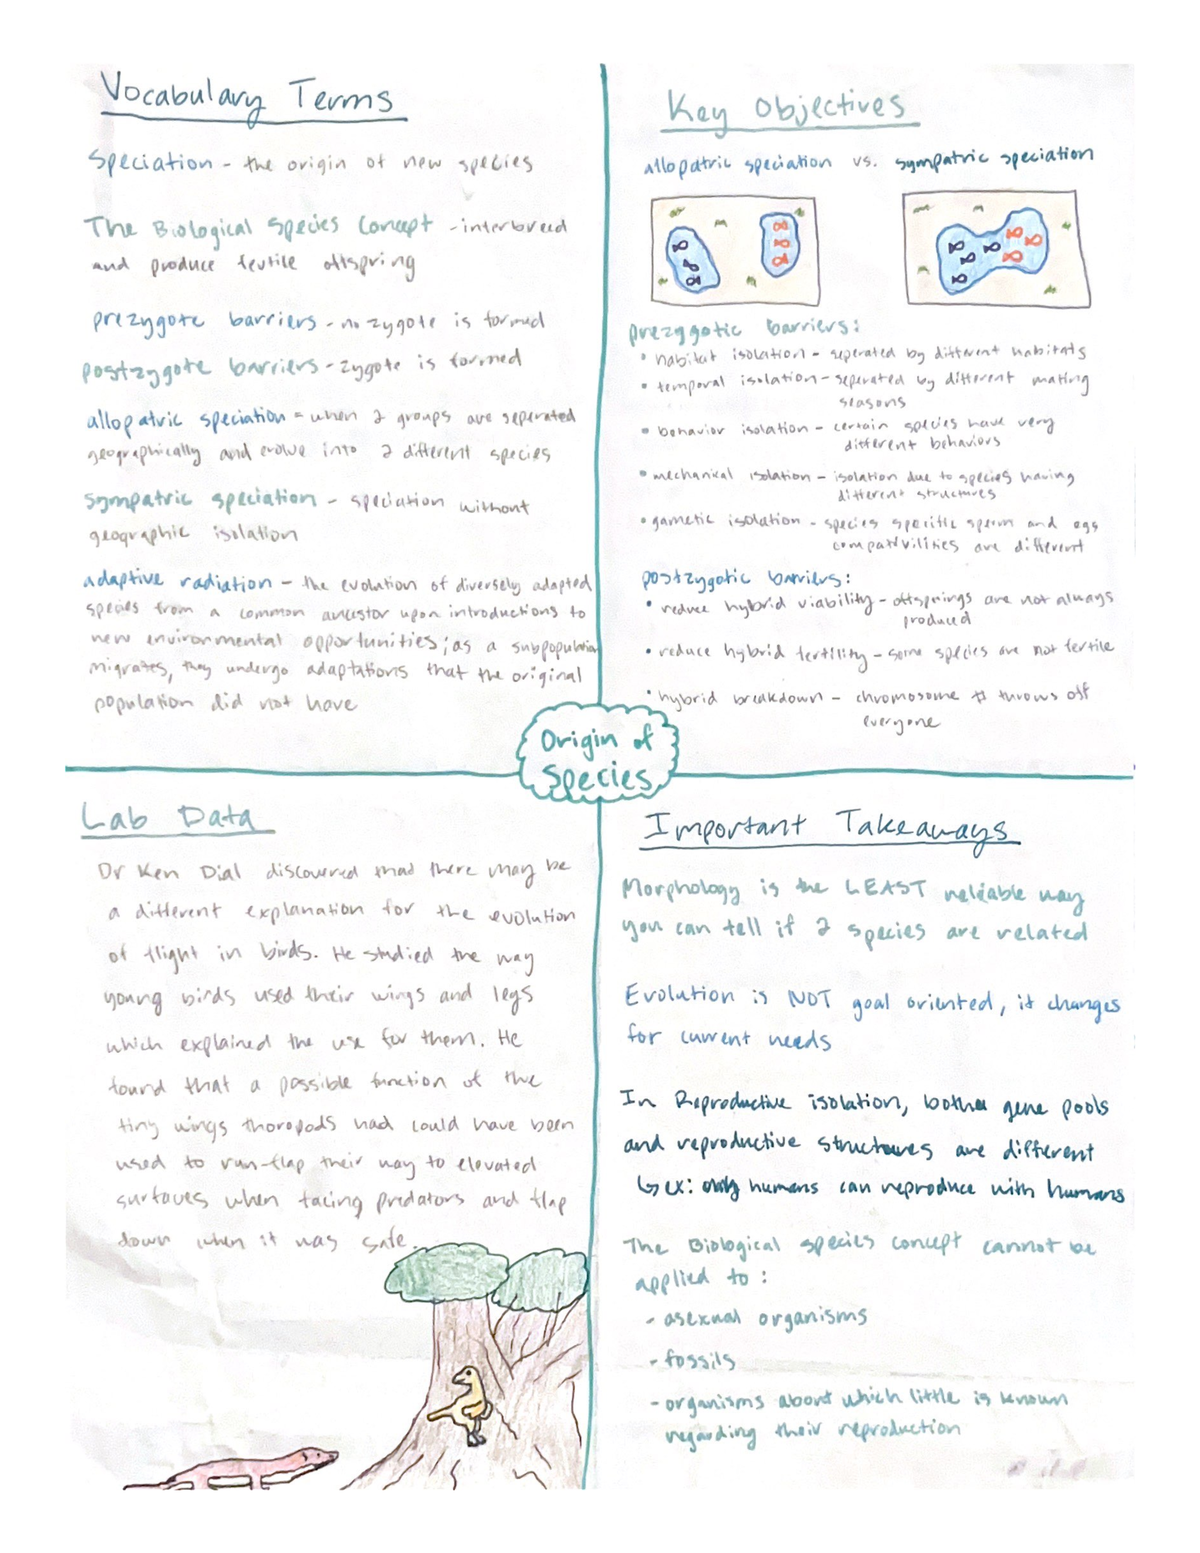 Vocabulary Terms
Speciation - the origin of new species
The Biological Species Concept - interbreed
and produce fertile offspring
prezygote barriers - no zygote is formed
postzygote barriers - zygote is formed
allopatric speciation = when 2 groups are seperated
geographically and evolve into 2 different species
sympatric speciation - speciation without
geographic isolation
adaptive radiation - the evolution of diversely adapted
species from a common ancestor upon introductions to
new environmental opportunities; as a subpopulation
migrates, they undergo adaptations that the original
population did not have
Key Objectives
allopatric speciation vs. sympatric speciation
prezygotic barriers:
• habitat isolation - seperated by different habitats
• temporal isolation - seperated by different mating
seasons
• behavior isolation - certain species have very
different behaviors
• mechanical isolation - isolation due to species having
different structures
• gametic isolation - species specific sperm and egg
compativilities are different
postzygotic barriers:
• reduce hybrid viability - offsprings are not always
produced
• reduce hybrid fertility - some species are not fertile
• hybrid breakdown - chromosome # throws off
everyone
Origin of
Species
Lab Data
Dr Ken Dial discovered that there may be
a different explanation for the evolution
of flight in birds. He studied the way
young birds used their wings and legs
which explained the use for them. He
found that a possible function of the
tiny wings thoropods had could have been
used to run-flap their way to elevated
surfaces when facing predators and flap
down when it was safe.
Important Takeaways
Morphology is the LEAST reliable way
you can tell if 2 species are related
Evolution is NOT goal oriented, it changes
for current needs
In Reproductive isolation, both gene pools
and reproductive structures are different
↳ ex: only humans can reproduce with humans
The Biological species concept cannot be
applied to:
- asexual organisms
- fossils
- organisms about which little is known
regarding their reproduction